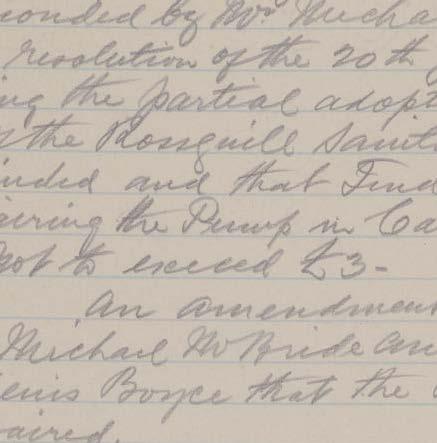 conded by Mr Micha
resolution of the 20th
ing the partial adopt
the Rossguill Sanit
inded and that Tend
airing the Pump in Ca
not to exceed £3-
An amendment
Michael McBride an
enis Boyce that the
aired.